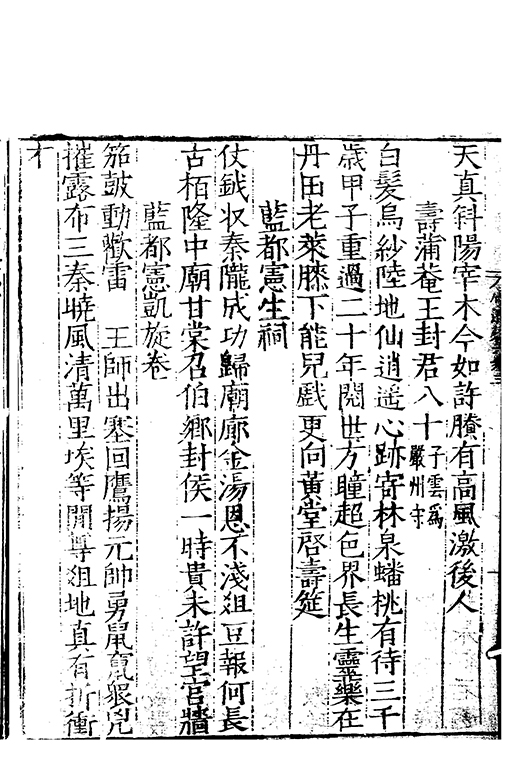 天真斜陽宰木今如許賸有高風激後人
壽蒲菴王封君八十子雲爲嚴州守
白髮烏紗陸地仙逍遥心跡寄林泉蟠桃有待三千
歳甲子重過二十年閱世方瞳超色界長生靈藥在
丹田老萊膝下能兒戲更向黃堂啓壽筵
藍都憲生祠
仗鉞収秦隴成功歸廟廊金湯恩不淺俎豆報何長
古栢隆中廟甘棠召伯鄉封侯一時貴未許望宮牆
藍都憲凱旋卷
笳鼓動歡雷 王師出塞回鷹揚元帥勇鼠竄
摧露布三秦曉風清萬里埃等閒尊俎地真有折衝
才